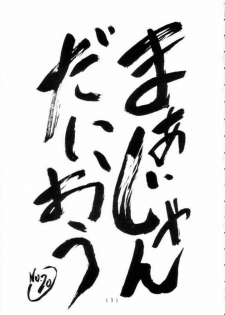 まぁじゃん
だいおう
( 3 )